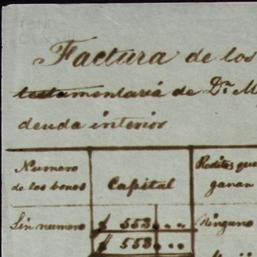 Factura de los
testamentaria de Dn. M
deuda interior
Numero de los bonos
Capital
Reditos que ganan
Sin numero
$ 553 „ „
Ninguno
$ 553 „ „